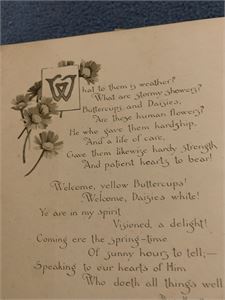 What to them is weather?
What are stormy showers?
Buttercups and Daisies,
Are these human flowers?
He who gave them hardship,
And a life of care,
Gave them likewise hardy strength
And patient hearts to bear!
Welcome, yellow Buttercups!
Welcome, Daisies white!
Ye are in my spirit
Visioned, a delight!
Coming ere the spring-time
Of sunny hours to tell;—
Speaking to our hearts of Him
Who doeth all things well